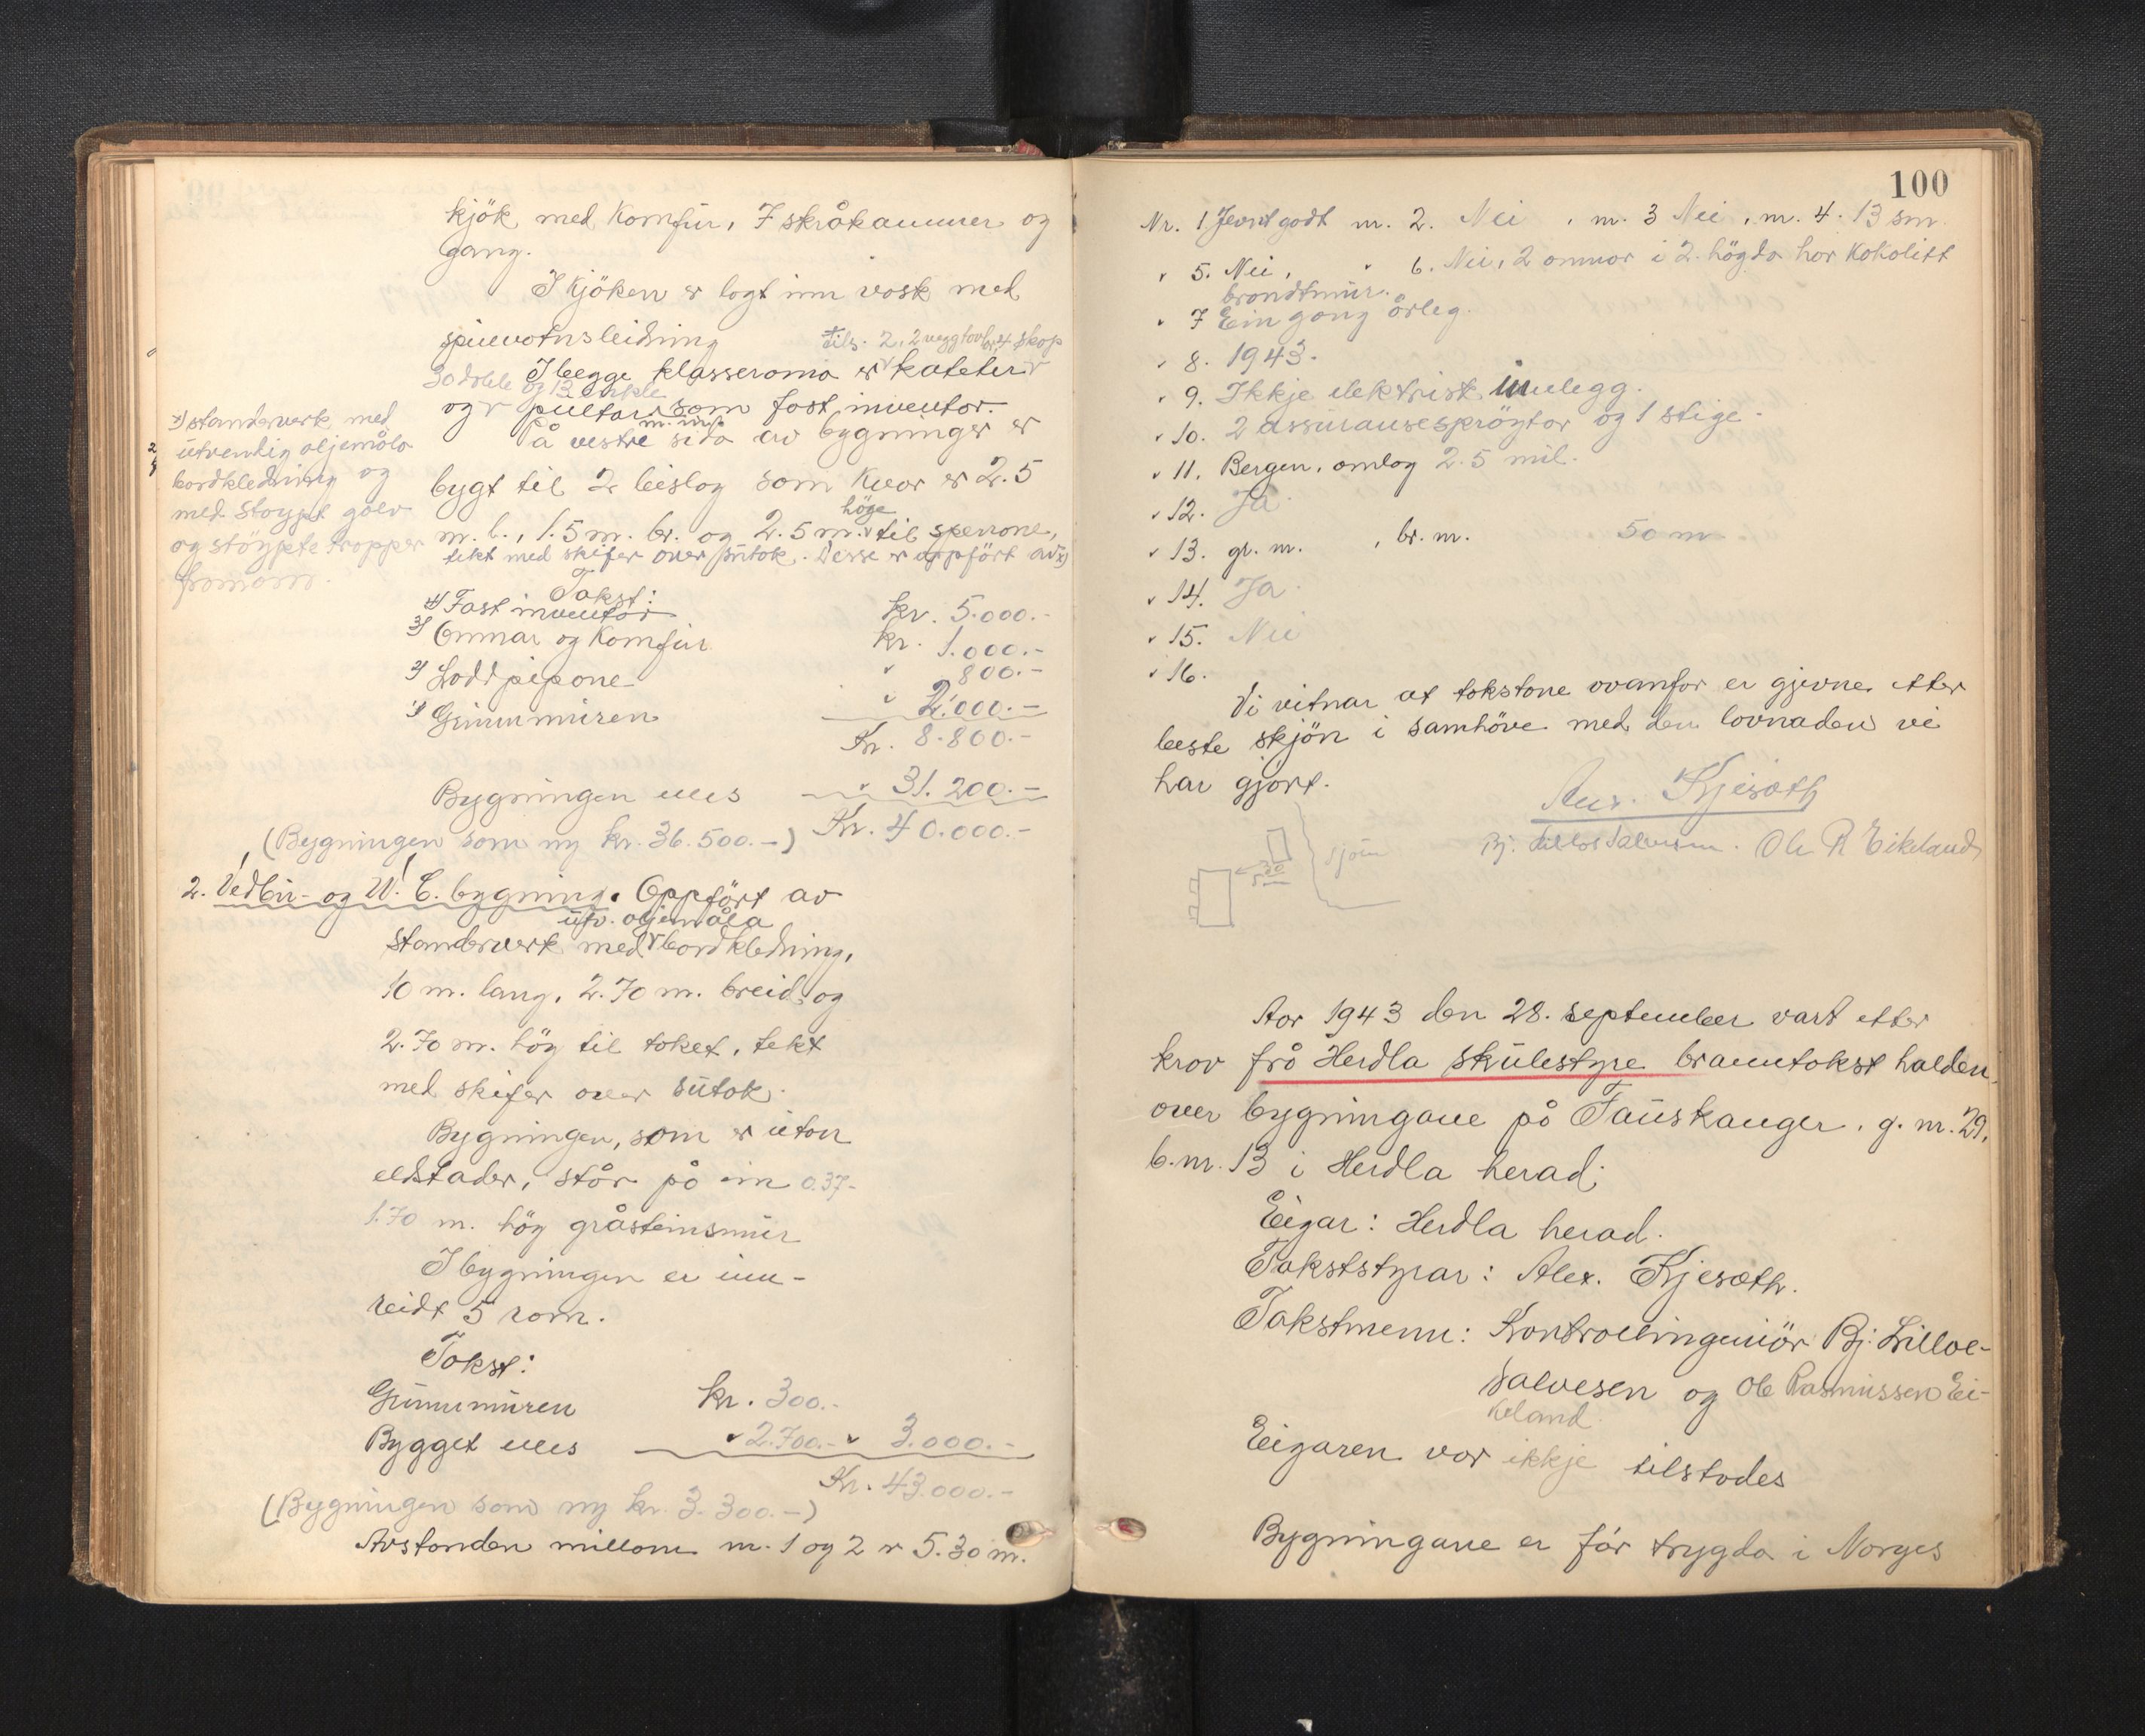 kjök med komfür, 7 skråkammer og
gang.
I kjöken er lagt inn vask med
spillvatnsleidning tils. 2 veggtavler, 4 skap
I begge klasseroma er kateter
30 doble og 12 enkle
og pultar som fast inventar.
m. m.
å vestre sida av bygningen er
bygt til 2 bislag som kvar er 2.5
høge
m. l., 1.5 m. br. og 2.5 m. til sperrone,
tekt med skifer over sutak. Desse er oppfört av x)
x) standerverk med
utvendig oljemåla
bordkledning og
med støypt golv
og støypte trapper
framom.
Takst:
4) Fast inventar kr. 5.000.-
3) Omnar og komfür kr. 1.000.-
2) Loddpipone " 800.-
1) Grunnmüren " 2.000.-
Kr. 8.800.-
Bygningen elles " 31.200.-
(Bygningen som ny kr. 36.500.-) Kr. 40.000.-
2. Vedbu- og W. C. bygning. Oppfört av
utv. oljemåla
standerverk med bordkledning,
10 m. lang, 2.70 m. breid og
2.70 m. hög til taket, tekt
med skifer over sütak.
Bygningen, som er utan
eldstader, står på ein 0.37-
1.70 m. hög gråsteinsmür
I bygningen er inn-
reidt 5 rom.
Takst:
Grunnmüren kr. 300.-
Bygget elles " 2.700.- " 3.000.-
Kr. 43.000.-
(Bygningen som ny kr. 3.300.-)
Avstanden millom nr. 1 og 2 er 5.30 m.
100
Nr. 1 Jevnt godt nr. 2. Nei, nr. 3 Nei, nr. 4. 13 sm.
" 5. Nei, " 6. Nei, 2 omnar i 2. högda har kokolitt
brandtmür.
" 7 Ein gang årleg.
" 8. 1943.
" 9. Ikkje elektrisk innlegg.
" 10. 2 assuransesprøytor og 1 stige.
" 11. Bergen, omlag 2.5 mil.
" 12. Ja
" 13. gr. m. , br. m. 50 m
" 14. Ja.
" 15. Nei
" 16.
Vi vitnar at takstane ovanfor er gjevne etter
beste skjön i samhöve med den lovnaden vi
har gjort.
Alex. Kjesæth
Bj. Lilloe Salvesen. Ole R Eikeland
sjøen
5.30
Aar 1943 den 28. september vart etter
krav frå Herdla skulestyre branntakst halden
over bygningane på Fauskanger, g. nr. 29,
b. nr. 13 i Herdla herad.
Eigar: Herdla herad.
Takststyrar: Alex. Kjesæth.
Takstmenn: Kontrollingeniör Bj. Lilloe-
Salvesen og Ole Rasmussen Ei-
keland.
Eigaren var ikkje tilstades
Bygningane er før trygda i Norges